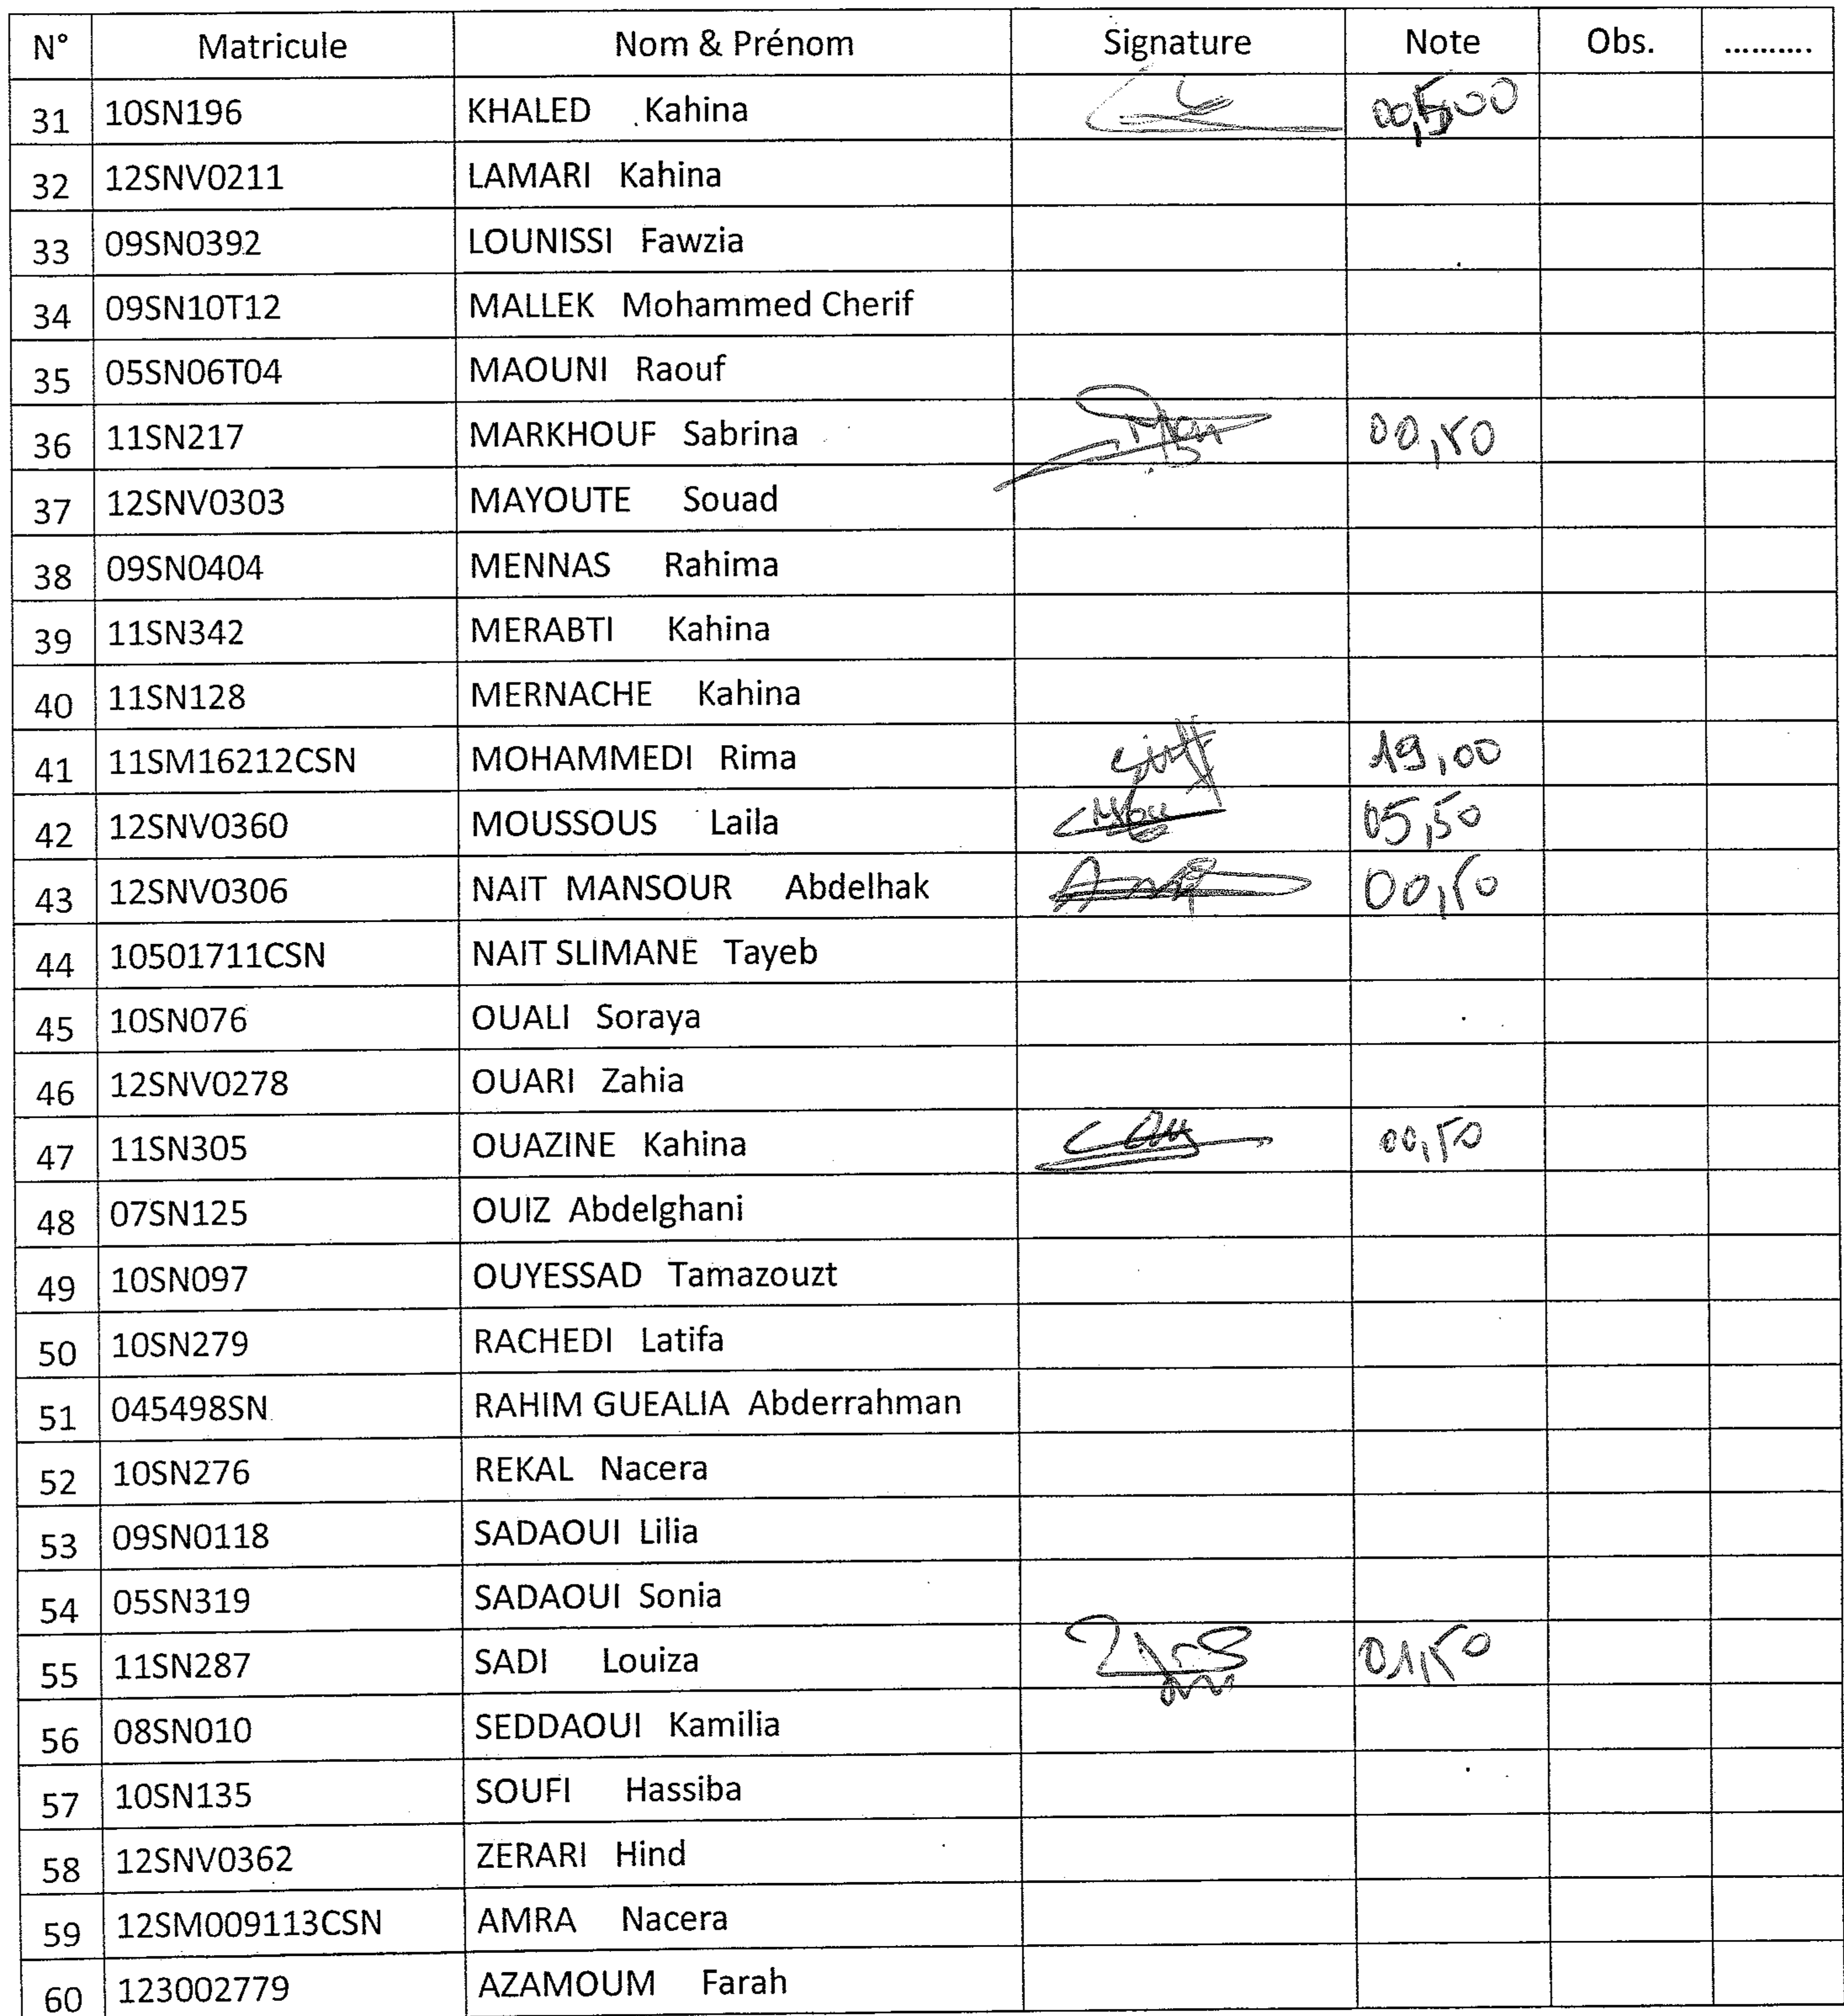 N° Matricule Nom & Prénom Signature Note Obs. ..........
31 10SN196 KHALED Kahina
32 12SNV0211 LAMARI Kahina
33 09SN0392 LOUNISSI Fawzia
34 09SN10T12 MALLEK Mohammed Cherif
35 05SN06T04 MAOUNI Raouf
36 11SN217 MARKHOUF Sabrina 00,50
37 12SNV0303 MAYOUTE Souad
38 09SN0404 MENNAS Rahima
39 11SN342 MERABTI Kahina
40 11SN128 MERNACHE Kahina
41 11SM16212CSN MOHAMMEDI Rima 19,00
42 12SNV0360 MOUSSOUS Laila 05,50
43 12SNV0306 NAIT MANSOUR Abdelhak 00,50
44 10501711CSN NAIT SLIMANE Tayeb
45 10SN076 OUALI Soraya
46 12SNV0278 OUARI Zahia
47 11SN305 OUAZINE Kahina 00,50
48 07SN125 OUIZ Abdelghani
49 10SN097 OUYESSAD Tamazouzt
50 10SN279 RACHEDI Latifa
51 045498SN RAHIM GUEALIA Abderrahman
52 10SN276 REKAL Nacera
53 09SN0118 SADAOUI Lilia
54 05SN319 SADAOUI Sonia
55 11SN287 SADI Louiza 01,50
56 08SN010 SEDDAOUI Kamilia
57 10SN135 SOUFI Hassiba
58 12SNV0362 ZERARI Hind
59 12SM009113CSN AMRA Nacera
60 123002779 AZAMOUM Farah